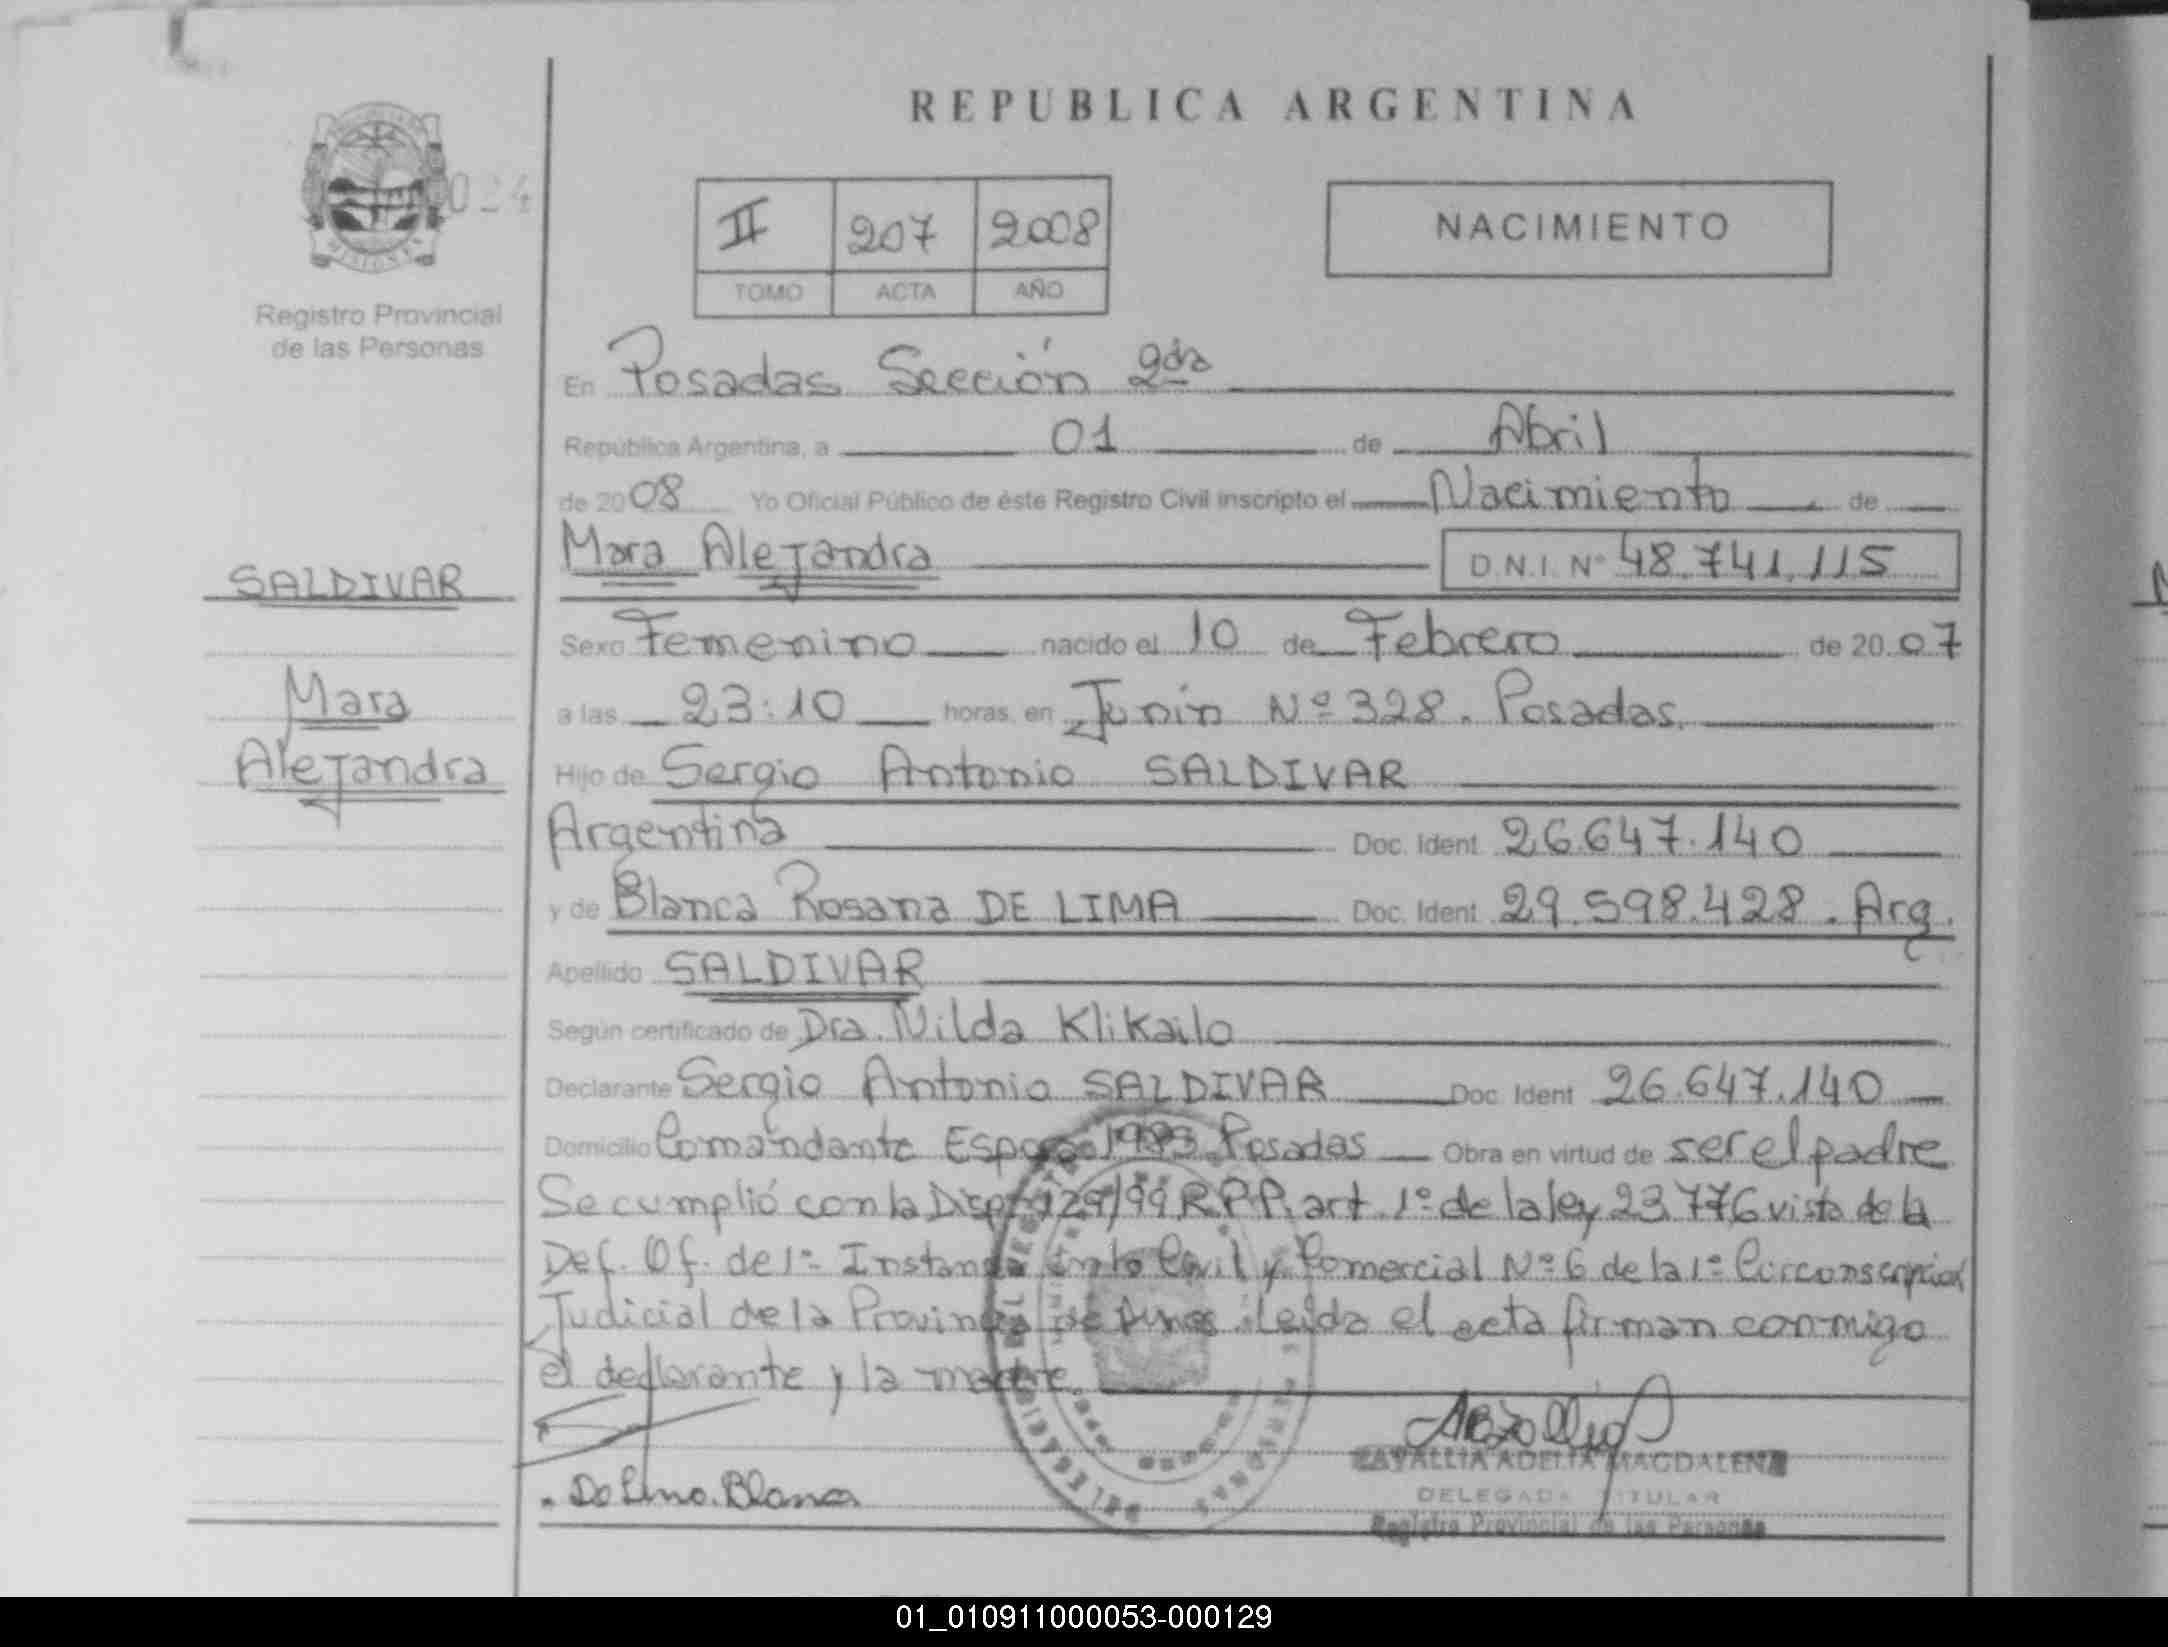 REPUBLICA ARGENTINA
MISIONES
024
Registro Provincial
de las Personas
II 207 2008
TOMO ACTA AÑO
NACIMIENTO
En Posadas Sección 2da
República Argentina, a 01 de Abril
de 2008 Yo Oficial Público de éste Registro Civil inscripto el Nacimiento de
Mara Alejandra D.N.I. Nº 48.741.115
SALDIVAR
Mara
Alejandra
Sexo Femenino nacido el 10 de Febrero de 2007
a las 23:10 horas, en Junín Nº 328. Posadas.
Hijo de Sergio Antonio SALDIVAR
Argentina Doc. Ident 26.647.140
y de Blanca Rosana DE LIMA Doc. Ident 29.598.428. Arg.
Apellido SALDIVAR
Según certificado de Dra. Nilda Klikailo
Declarante Sergio Antonio SALDIVAR Doc. Ident 26.647.140
Domicilio Comandante 1983. Posadas Obra en virtud de ser el padre
Se cumplió con la Disp. 129/99 R.P.P. art. 1º de la ley 23.776 vista de la
Def. Of. de 1º Instancia en lo Civil y Comercial Nº 6 de la 1º Circonscripción
Judicial de la Provincia de Leída el acta firman conmigo
el declarante y la madre.
De Lima. Blanca
ZAVALLIA ADELIA MAGDALENA
DELEGADA TITULAR
Registro Provincial de las Personas
01_010911000053-000129